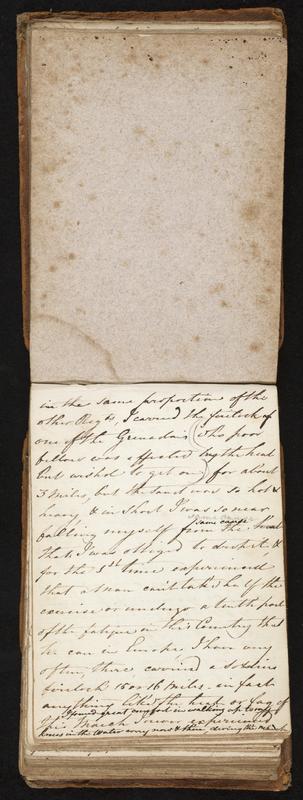 in the same proportion of the
other Regts, I carried the firelock of
one of the Grenadiers (who poor
fellow was affected by the heat
but wished to get on) for about
3 miles, but the sand was so hot &
heavy, & in short I was so near
falling myself from the
same cause
that I was obliged to drop it &
for the 1st time experienced
that a man can't take
exercise or undergo a tenth part
of the fatigue in this Country that
he can in Europe. I have very
often, there carried a soldiers
firelock 15 or 16 miles. in fact
anything like the heat or fag of
I found great comfort in walking up to my
this March I never experienced
knees in the water every now & then, during the march